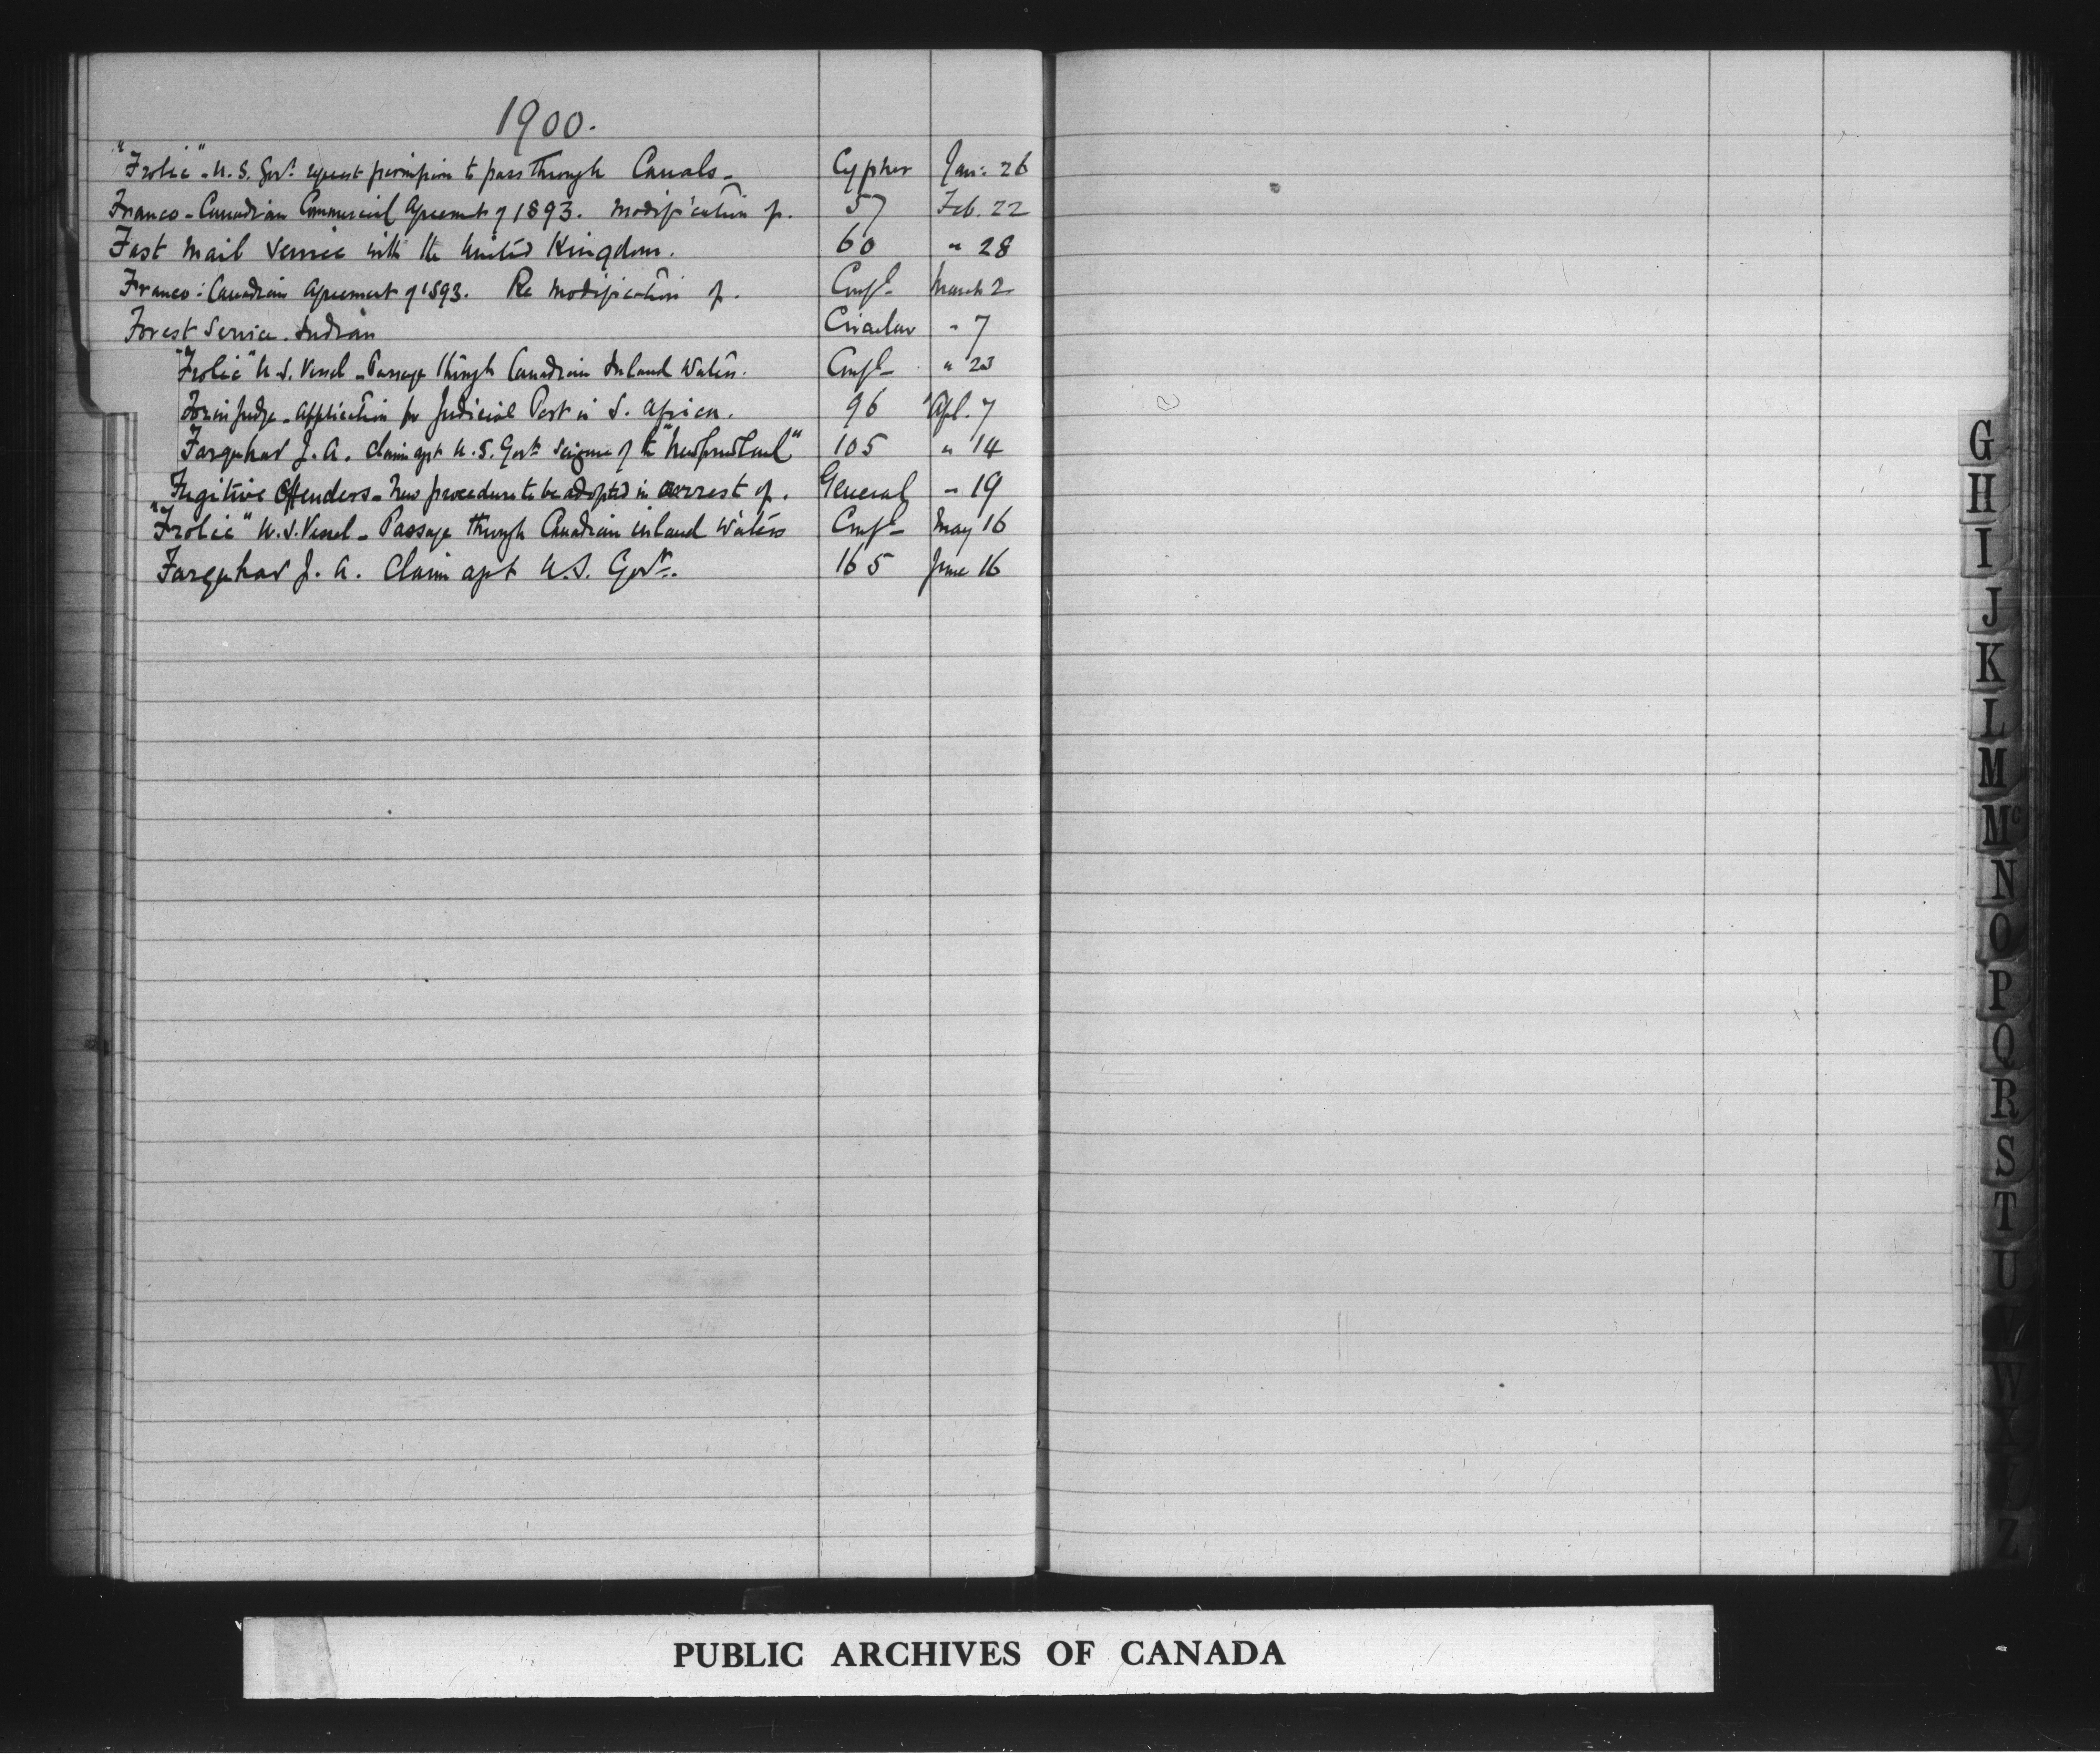 1900.
"Frolic" - U.S. Govt. request permission to pass through Canals - Cypher Jan: 26
Franco-Canadian Commercial Agreement of 1893. Modification of. 57 Feb. 22
Fast Mail Service with the United Kingdom. 60 " 28
Franco-Canadian Agreement of 1893. Re Modification of. Confl March 2
Forest Service. Indian Circular " 7
"Frolic" U.S. Vessel - Passage through Canadian Inland Waters. Confl " 23
Forin Judge - Application for Judicial Post in S. Africa. 96 Apl. 7
Farquhar J. A. Claim agst U.S. Govt. seizure of the "Newfoundland" 105 " 14
Fugitive Offenders - New procedure to be adopted in arrest of. General " 19
"Frolic" U.S. Vessel - Passage through Canadian inland Waters Confl May 16
Farquhar J. A. Claim agst U.S. Govt. 165 June 16
G
H
I
J
K
L
M
Mc
N
O
P
Q
R
S
T
U
V
W
Y
Z
PUBLIC ARCHIVES OF CANADA